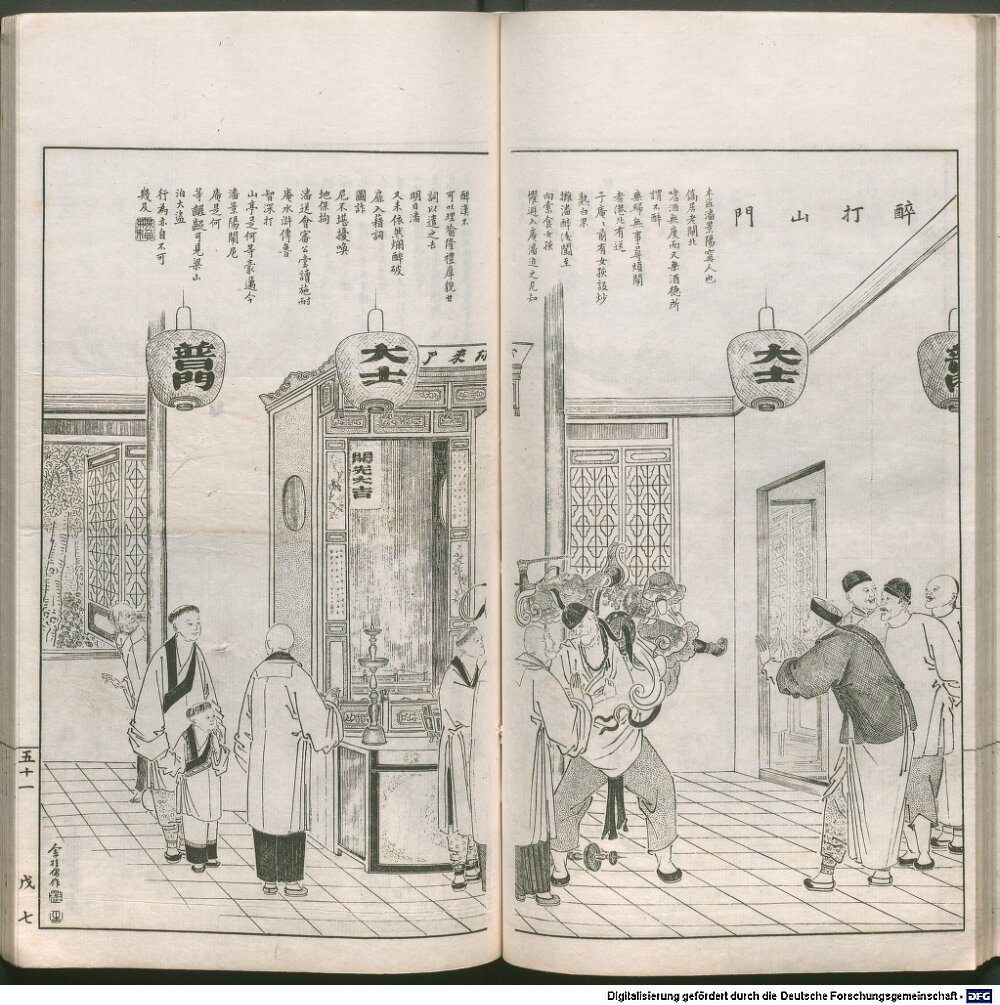 醉打山門
米匠潘景陽寗人也
僑居老閘北
嗜酒無度而又無酒德所
謂不醉
無歸無事尋煩鬧
者港北有送
子庵庵前有女孩設炒
熟白果
攤潘醉後闖至
向索食女孩
懼避入庵潘追之尼知
醉漢不
可以理喻隆禮摩貌甘
詞以遣之去
明日潘
又来依然爛醉破
扉入藉詞
圖詐
尼不堪擾喚
地保拘
潘送會審公堂讀施耐
庵水滸傳魯
智深打
山亭是何等豪邁今
潘景陽鬧尼
庵是何
等齷齪可見梁山
泊大盗
行為亦自不可
幾及
大士
大士
普門
開光大吉
五十一
戊 七
Digitalisierung gefördert durch die Deutsche Forschungsgemeinschaft - DFG